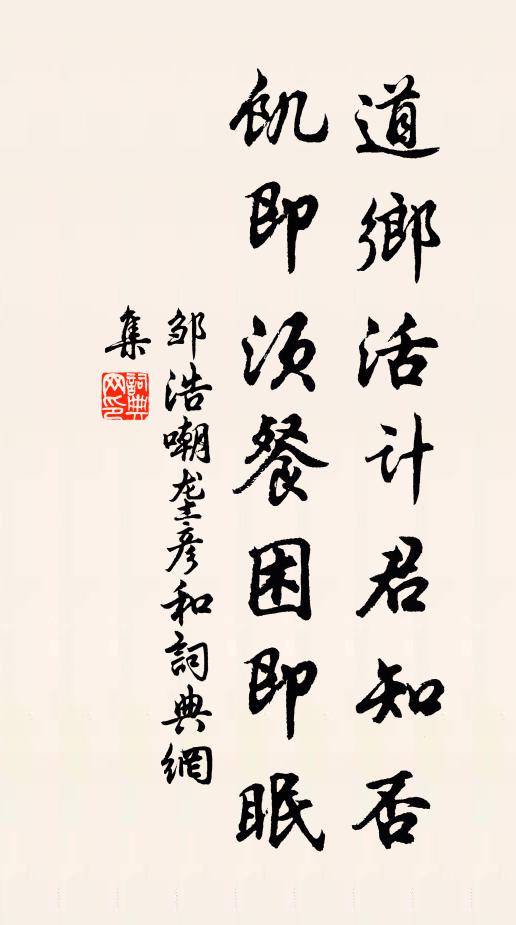 道鄉活計君知否
飢即須餐困即眠
邹浩嘲龙圭彦和詞典網
集
詞典
网印